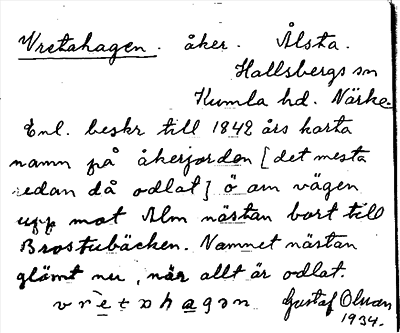 Vretahagen. åker. Ålsta.
Hallsbergs sn
Kumla hd. Närke.
Enl. beskr till 1842 års karta
namn på åkerjorden [det mesta
redan då odlat] ö om vägen
upp mot Alm nästan bort till
Brostubäcken. Namnet nästan
glömt nu, när allt är odlat.
vretahagən Gustaf Olsson
1934.